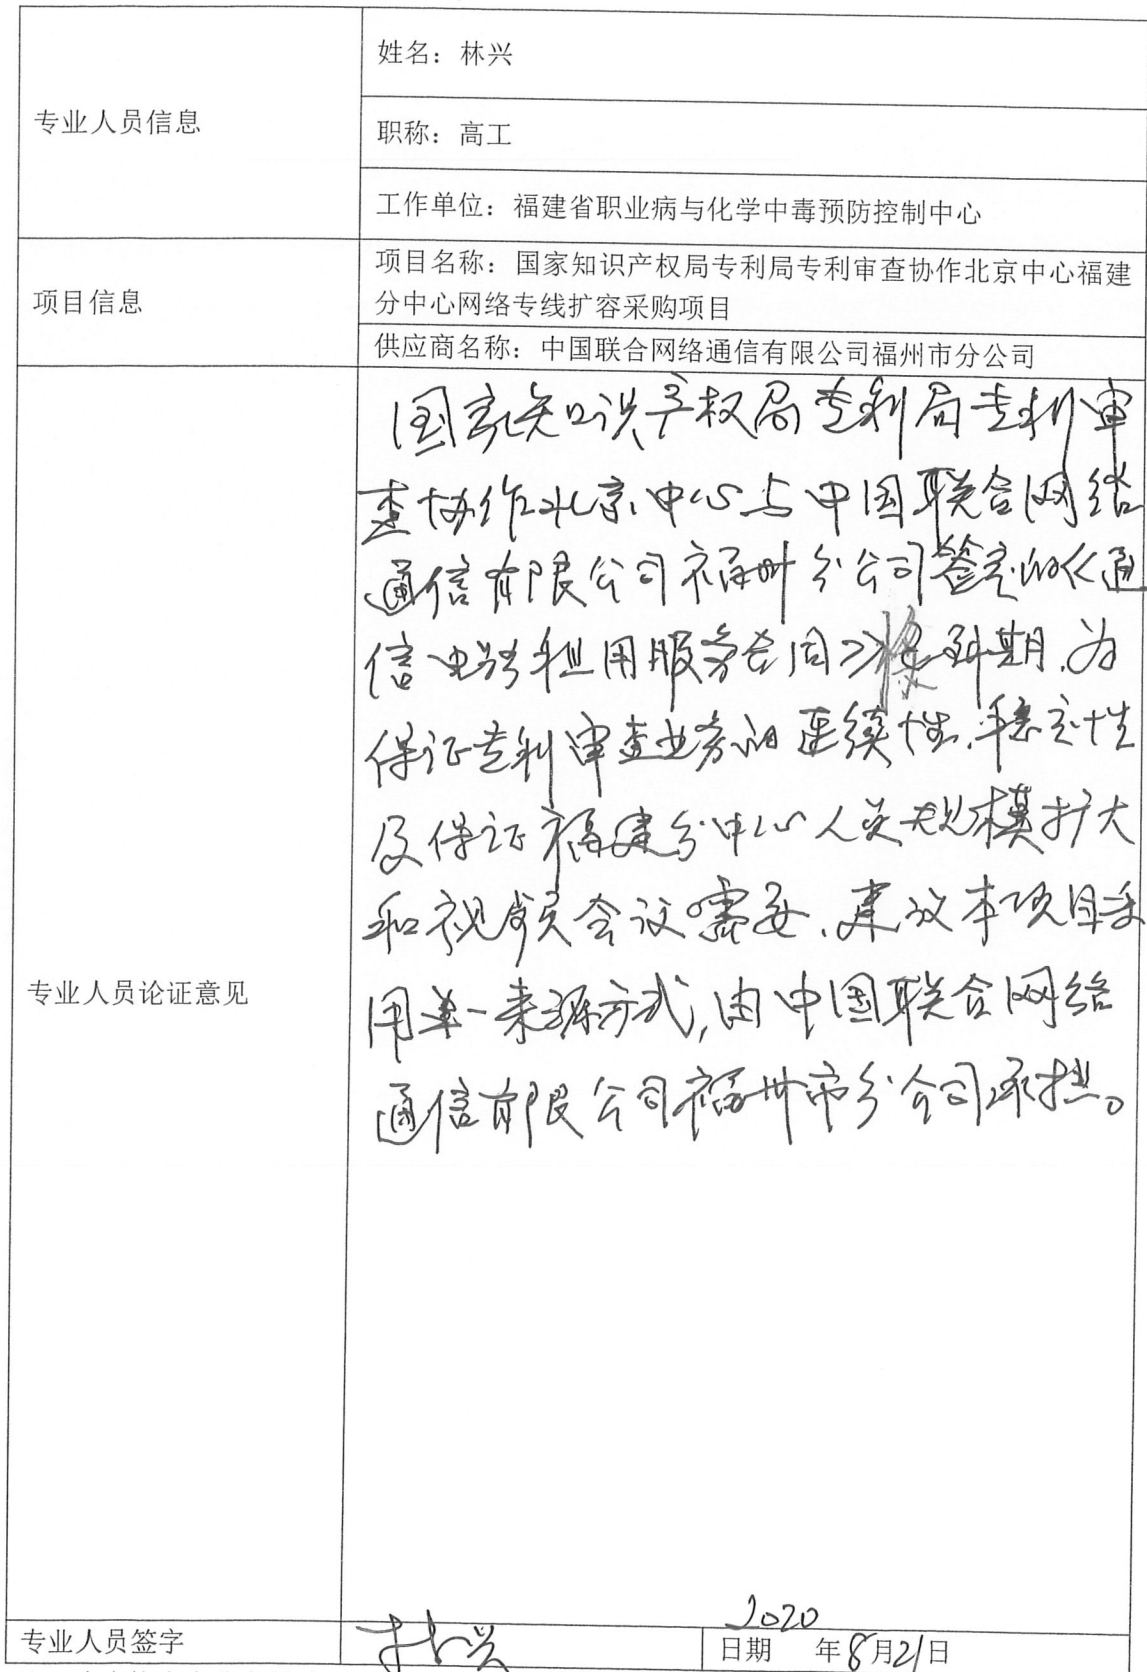 专业人员信息
姓名：林兴
职称：高工
工作单位：福建省职业病与化学中毒预防控制中心
项目信息
项目名称：国家知识产权局专利局专利审查协作北京中心福建
分中心网络专线扩容采购项目
供应商名称：中国联合网络通信有限公司福州市分公司
专业人员论证意见
国家知识产权局专利局专利审
查协作北京中心与中国联合网络
通信有限公司福州分公司签定的《通
信电路租用服务合同》将到期，为
保证专利审查业务的连续性、稳定性
及保证福建分中心人员规模扩大
和视频会议需要，建议本项目采
用单一来源方式，由中国联合网络
通信有限公司福州市分公司承担。
专业人员签字
林兴
2020
日期 年8月21日